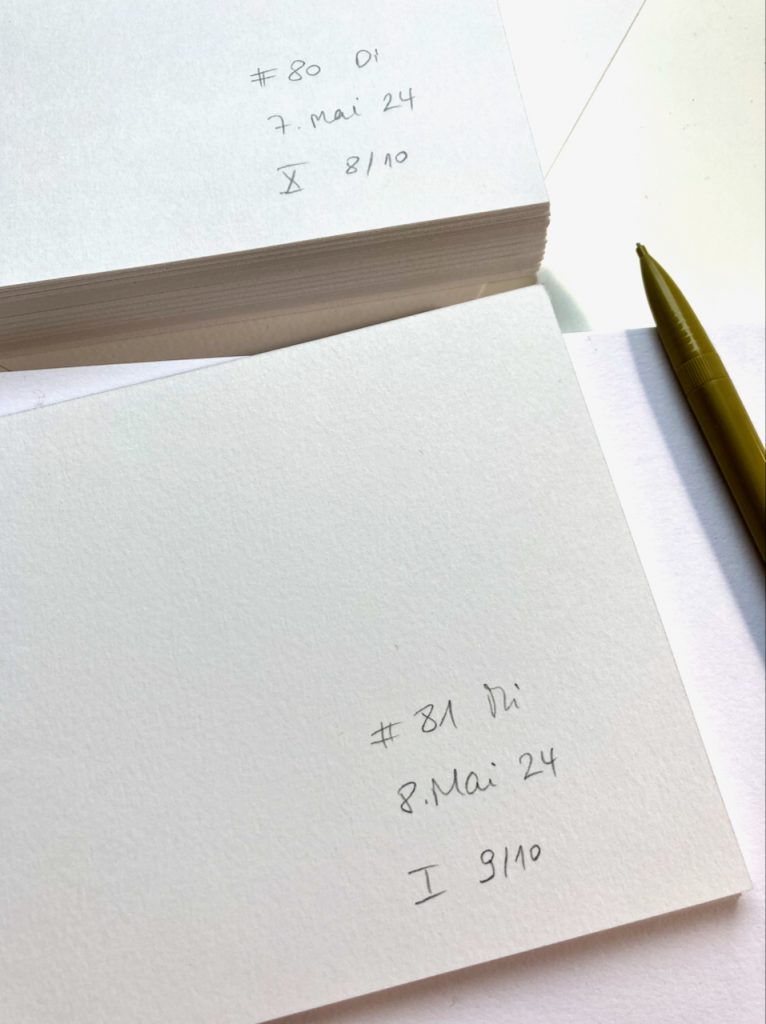 #80 Di
7. Mai 24
X 8/10
#81 Mi
8. Mai 24
I 9/10